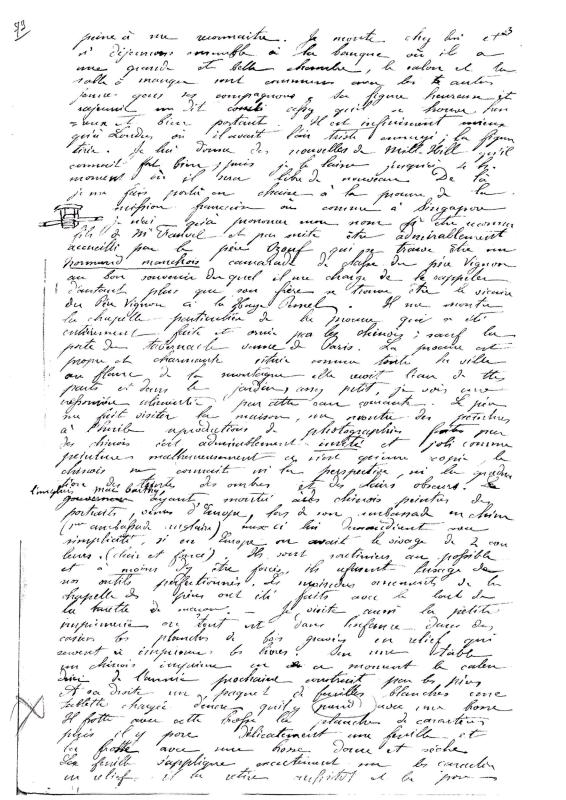 79
23
peine à me reconnaitre. Je monte chez lui et
n/ déjeunons ensemble à la banque où il a
une grande et belle chambre, le salon et la
salle à manger sont communs avec les autres
jeunes gens ses compagnons, sa figure heureuse et
rajeunie me dit assez qu'il se trouve
et bien portant. Il est infiniment mieux
qu'à Londres où il avait l'air triste ennuyé, la figure
tirée. Je lui donne des nouvelles de Mill Hill qu'il
connait fort bien, puis je le laisse jusqu'à
moment où il sera libre de nouveau. De là
je me fais porter en chaise à la procure de la
mission française où comme à Singapour
je n'ai qu'à prononcer mon nom
fils de Mr Fauvel et par suite être admirablement
accueilli par le père Ozouf qui se trouve être un
normand manchois camarade de classe du père Vignon
au bon souvenir duquel il me charge de le rappeler
d'autant plus que son frère se trouve être le vicaire
du Père Vignon à la Haye Pesnel. Il me montre
la chapelle particulière de la procure qui a été
entièrement faite et ornie par les chinois; sauf la
porte du tabernacle venue de Paris. La procure est
propre et charmante située comme toute la ville
au flanc de la montagne elle reçoit l'eau de
part et dans le jardin, assez petit, je vois une
alimentée par cette eau courante. Le père
me fait visiter la maison, me montre des peintures
à l'huile reproductions de photographies faites par
des chinois c'est admirablement imité et joli comme
peinture malheureusement ce n'est qu'une copie, le
chinois ne connait ni la perspective ni la
des ombres et des clairs obscurs. Le
l'ambass. mac
gouverneur ayant montré aux chinois peintres des
portraits, venus d'Europe, lors de son ambassade en chine
(1ère ambassade anglaise) ceux ci lui demandèrent avec
simplicité, si en Europe on avait le visage de 2 cou
leurs. (clair et foncé). Ils sont routiniers au possible
et à moins d'y être forcés, ils refusent l'usage de
nos outils perfectionnés. Les moindres ornements de la
chapelle des pères ont été faits avec le
la truelle de maçon. — Je visite aussi la petite
imprimerie où tout est dans l'enfance. Dans des
casiers les planches de bois gravées en relief qui
servent à imprimer les livres. Sur une table
un chinois imprime en ce moment le calen
drier de l'année prochaine construit par les pères
A sa droite un paquet de feuilles blanches une
tablette chargée d'encre qu'il y prend avec une brosse
Il frotte avec cette brosse la planche de caractères
puis il y pose délicatement une feuille et
la frotte avec une brosse douce et sèche
La feuille s'applique exactement sur les caractères
en relief. il la retire aussitôt et la pose